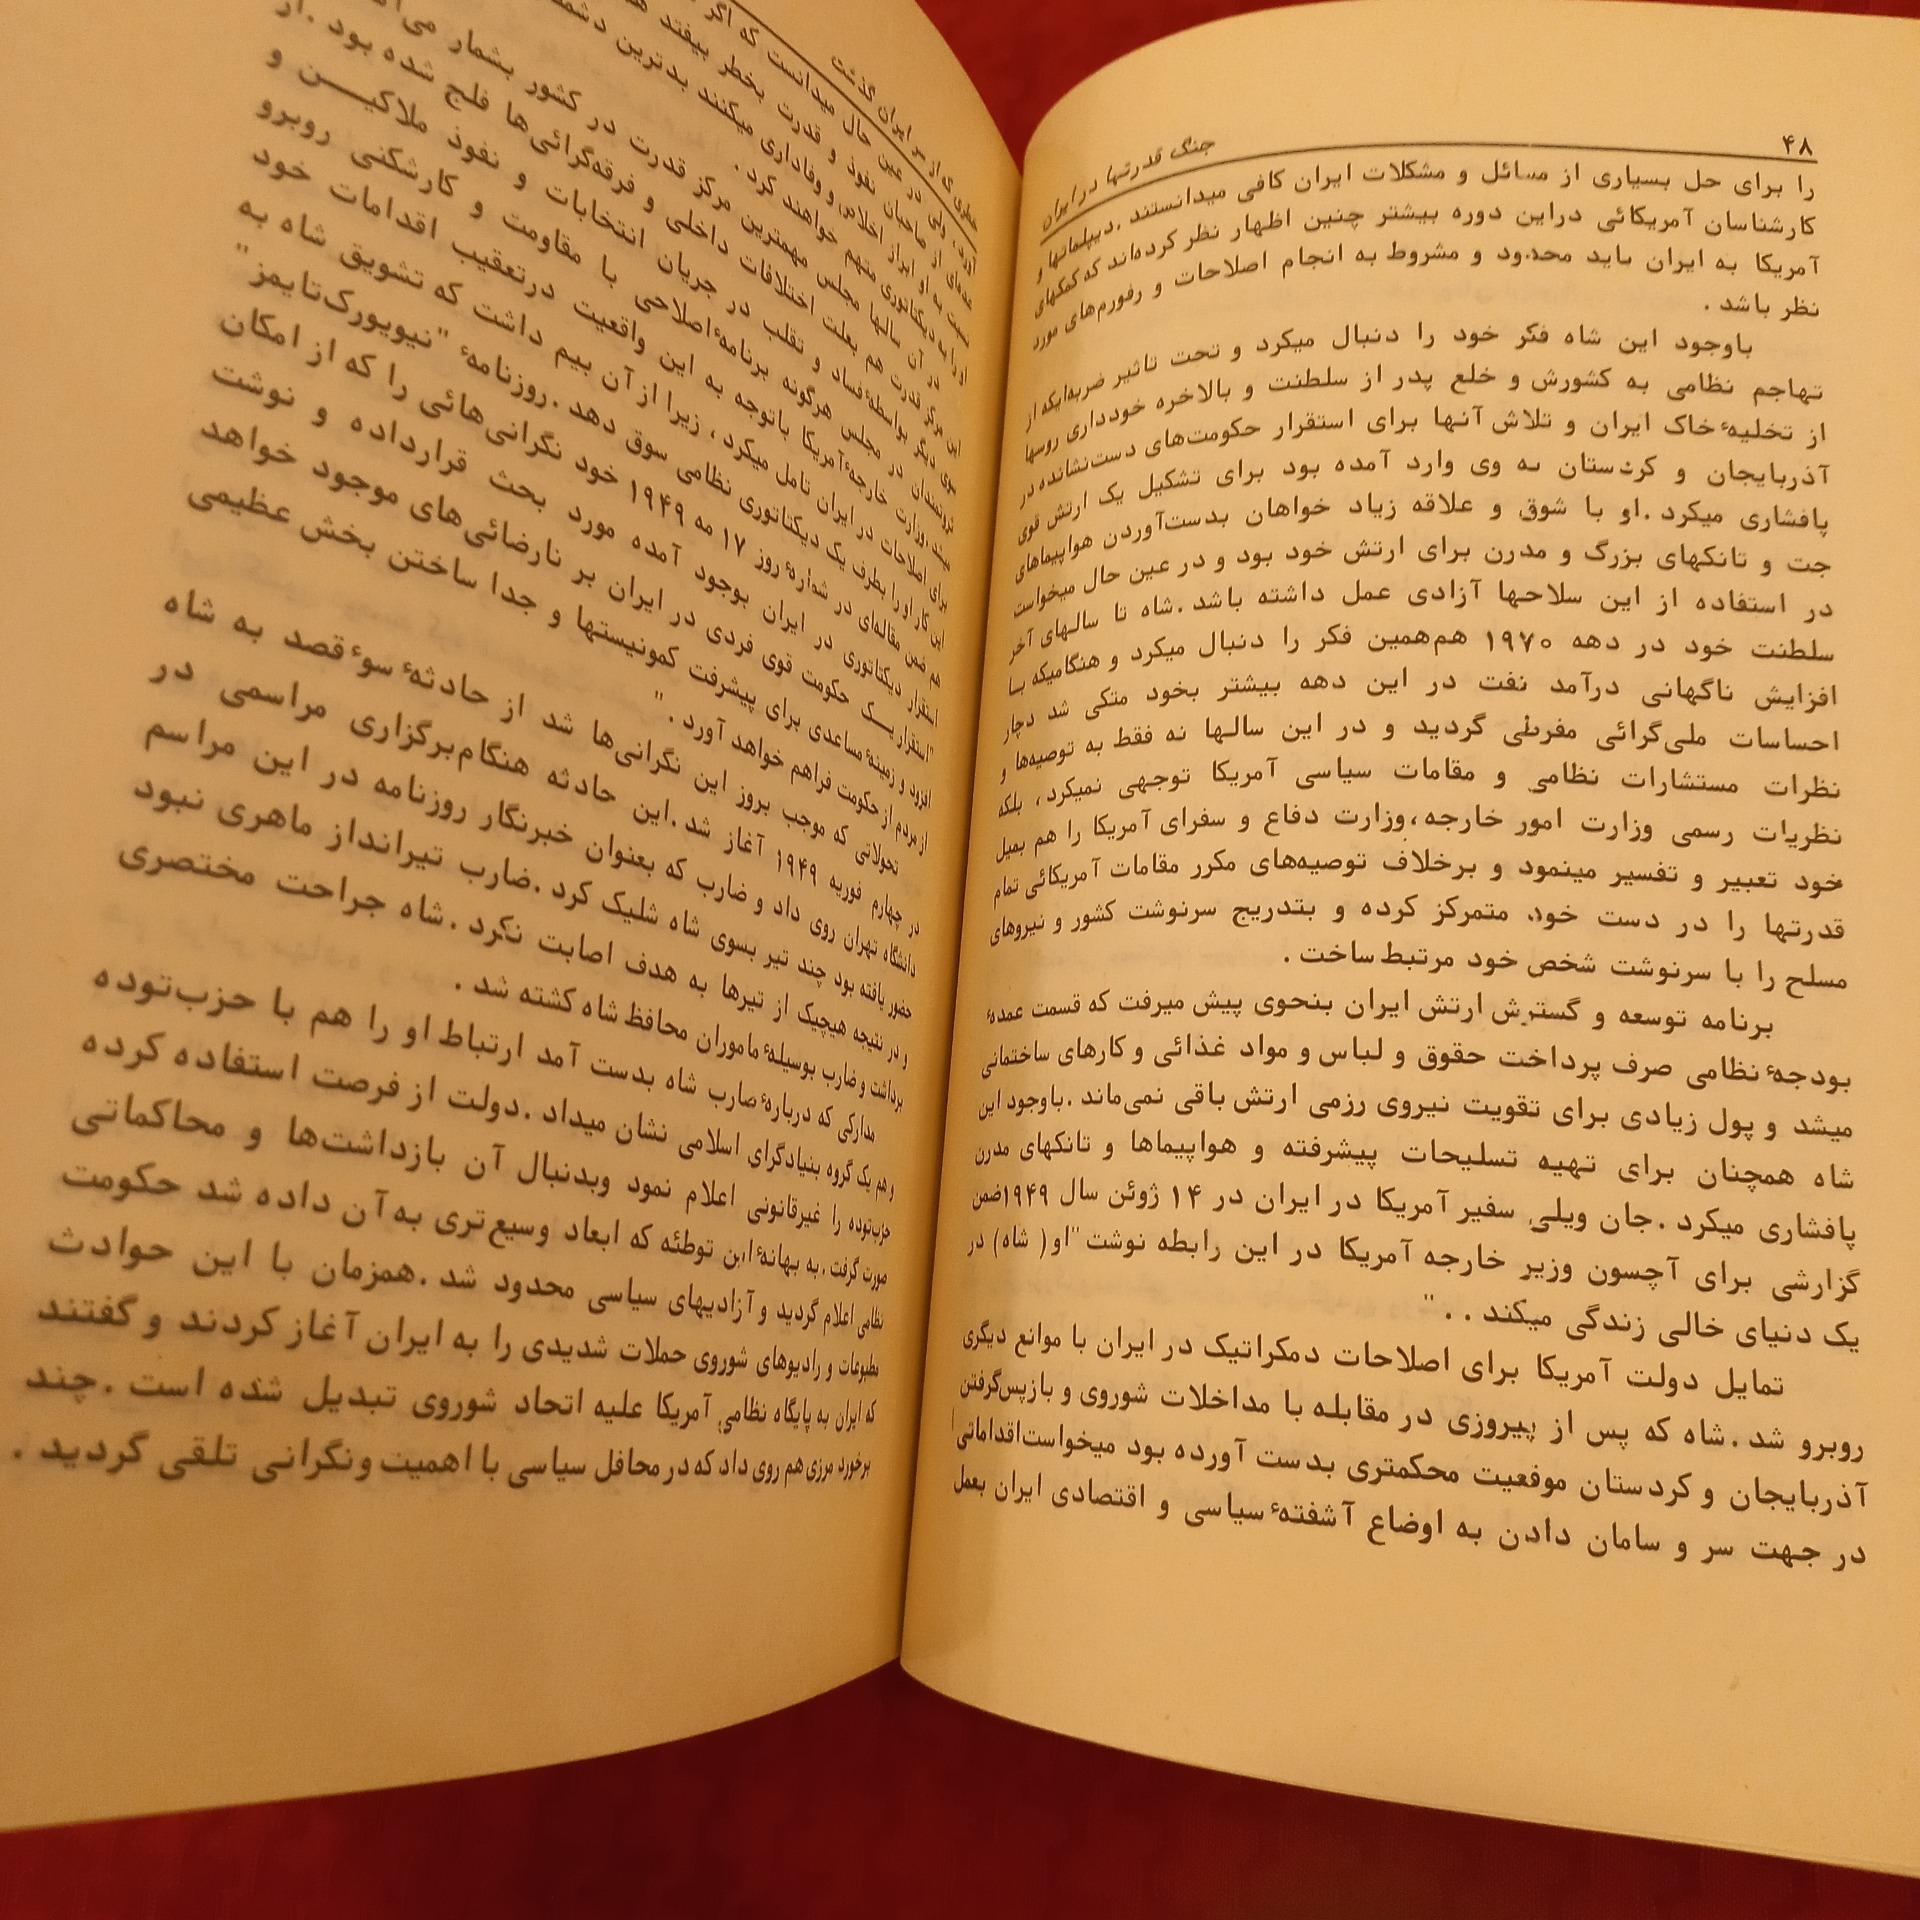 ۴۸
جنگ قدرتها در ایران
را برای حل بسیاری از مسائل و مشکلات ایران کافی میدانستند .دیپلماتها و
کارشناسان آمریکائی دراین دوره بیشتر چنین اظهار نظر کرده‌اند که کمکهای
آمریکا به ایران باید محدود و مشروط به انجام اصلاحات و رفورم‌های مورد
نظر باشد .
باوجود این شاه فکر خود را دنبال میکرد و تحت تاثیر ضربه‌ایکه از
تهاجم نظامی به کشورش و خلع پدر از سلطنت و بالاخره خودداری روسها
از تخلیه‌ٔ خاک ایران و تلاش آنها برای استقرار حکومت‌های دست‌نشانده در
آذربایجان و کردستان به وی وارد آمده بود برای تشکیل یک ارتش قوی
پافشاری میکرد .او با شوق و علاقه زیاد خواهان بدست‌آوردن هواپیماهای
جت و تانکهای بزرگ و مدرن برای ارتش خود بود و در عین حال میخواست
در استفاده از این سلاحها آزادی عمل داشته باشد .شاه تا سالهای آخر
سلطنت خود در دهه ۱۹۷۰ هم‌همین فکر را دنبال میکرد و هنگامیکه با
افزایش ناگهانی درآمد نفت در این دهه بیشتر بخود متکی شد دچار
احساسات ملی‌گرائی مفرطی گردید و در این سالها نه فقط به توصیه‌ها و
نظرات مستشارات نظامی و مقامات سیاسی آمریکا توجهی نمیکرد، بلکه
نظریات رسمی وزارت امور خارجه ،وزارت دفاع و سفرای آمریکا را هم بمیل
خود تعبیر و تفسیر مینمود و برخلاف توصیه‌های مکرر مقامات آمریکائی تمام
قدرتها را در دست خود متمرکز کرده و بتدریج سرنوشت کشور و نیروهای
مسلح را با سرنوشت شخص خود مرتبط ساخت .
برنامه توسعه و گسترش ارتش ایران بنحوی پیش میرفت که قسمت عمده‌ٔ
بودجه‌ٔ نظامی صرف پرداخت حقوق و لباس و مواد غذائی و کارهای ساختمانی
میشد و پول زیادی برای تقویت نیروی رزمی ارتش باقی نمی‌ماند .باوجود این
شاه همچنان برای تهیه تسلیحات پیشرفته و هواپیماها و تانکهای مدرن
پافشاری میکرد .جان ویلی سفیر آمریکا در ایران در ۱۴ ژوئن سال ۱۹۴۹ضمن
گزارشی برای آچسون وزیر خارجه آمریکا در این رابطه نوشت "او ( شاه) در
یک دنیای خالی زندگی میکند . . "
تمایل دولت آمریکا برای اصلاحات دمکراتیک در ایران با موانع دیگری
روبرو شد .شاه که پس از پیروزی در مقابله با مداخلات شوروی و بازپس‌گرفتن
آذربایجان و کردستان موفعیت محکمتری بدست آورده بود میخواست‌اقداماتی
در جهت سر و سامان دادن به اوضاع آشفته‌ٔ سیاسی و اقتصادی ایران بعمل
که از سر ایران گذشت
آورد، ولی در عین حال میدانست که اگر
عده‌ای از صاحبان نفوذ و قدرت بخطر بیفتد
نسبت به او ابراز اخلاص و وفاداری میکنند بدترین
او را به دیکتاتوری متهم خواهند کرد .
در آن سالها مجلس مهمترین مرکز قدرت در کشور بشمار
این مرکز قدرت هم بعلت اختلافات داخلی و فرقه‌گرائی‌ها فلج شده بود .از
سوی دیگر بواسطه‌ٔ فساد و تقلب در جریان انتخابات و نفوذ ملاکین و
ثروتمندان در مجلس هرگونه برنامه‌ٔ اصلاحی با مقاومت و کارشکنی روبرو
میشد .وزارت خارجه‌ٔ آمریکا باتوجه به این واقعیت درتعقیب اقدامات خود
برای اصلاحات در ایران تامل میکرد، زیرا از آن بیم داشت که تشویق شاه به
این کار او را بطرف یک دیکتاتوری نظامی سوق دهد .روزنامه‌ٔ "نیویورک‌تایمز"
هم ضمن مقاله‌ای در شماره‌ٔ روز ۱۷ مه ۱۹۴۹ خود نگرانی‌هائی را که از امکان
استقرار دیکتاتوری در ایران بوجود آمده مورد بحث قرارداده و نوشت
"استقرار یک حکومت قوی فردی در ایران بر نارضائی‌های موجود خواهد
افزود و زمینه‌ٔ مساعدی برای پیشرفت کمونیستها و جدا ساختن بخش عظیمی
از مردم از حکومت فراهم خواهد آورد ."
تحولاتی که موجب بروز این نگرانی‌ها شد از حادثه‌ٔ سوء‌قصد به شاه
در چهارم فوریه ۱۹۴۹ آغاز شد .این حادثه هنگام‌برگزاری مراسمی در
دانشگاه تهران روی داد و ضارب که بعنوان خبرنگار روزنامه در این مراسم
حضور یافته بود چند تیر بسوی شاه شلیک کرد .ضارب تیرانداز ماهری نبود
و در نتیجه هیچیک از تیرها به هدف اصابت نکرد .شاه جراحت مختصری
برداشت و ضارب بوسیله‌ٔ ماموران محافظ شاه کشته شد .
مدارکی که درباره‌ٔ ضارب شاه بدست آمد ارتباط او را هم با حزب‌توده
و هم یک گروه بنیادگرای اسلامی نشان میداد .دولت از فرصت استفاده کرده
حزب‌توده را غیرقانونی اعلام نمود وبدنبال آن بازداشت‌ها و محاکماتی
صورت گرفت .به بهانه‌ٔ این توطئه که ابعاد وسیع‌تری به‌آن داده شد حکومت
نظامی اعلام گردید و آزادیهای سیاسی محدود شد .همزمان با این حوادث
مطبوعات و رادیوهای شوروی حملات شدیدی را به ایران آغاز کردند و گفتند
که ایران به پایگاه نظامی آمریکا علیه اتحاد شوروی تبدیل شده است .چند
برخورد مرزی هم روی داد که در محافل سیاسی با اهمیت ونگرانی تلقی گردید .